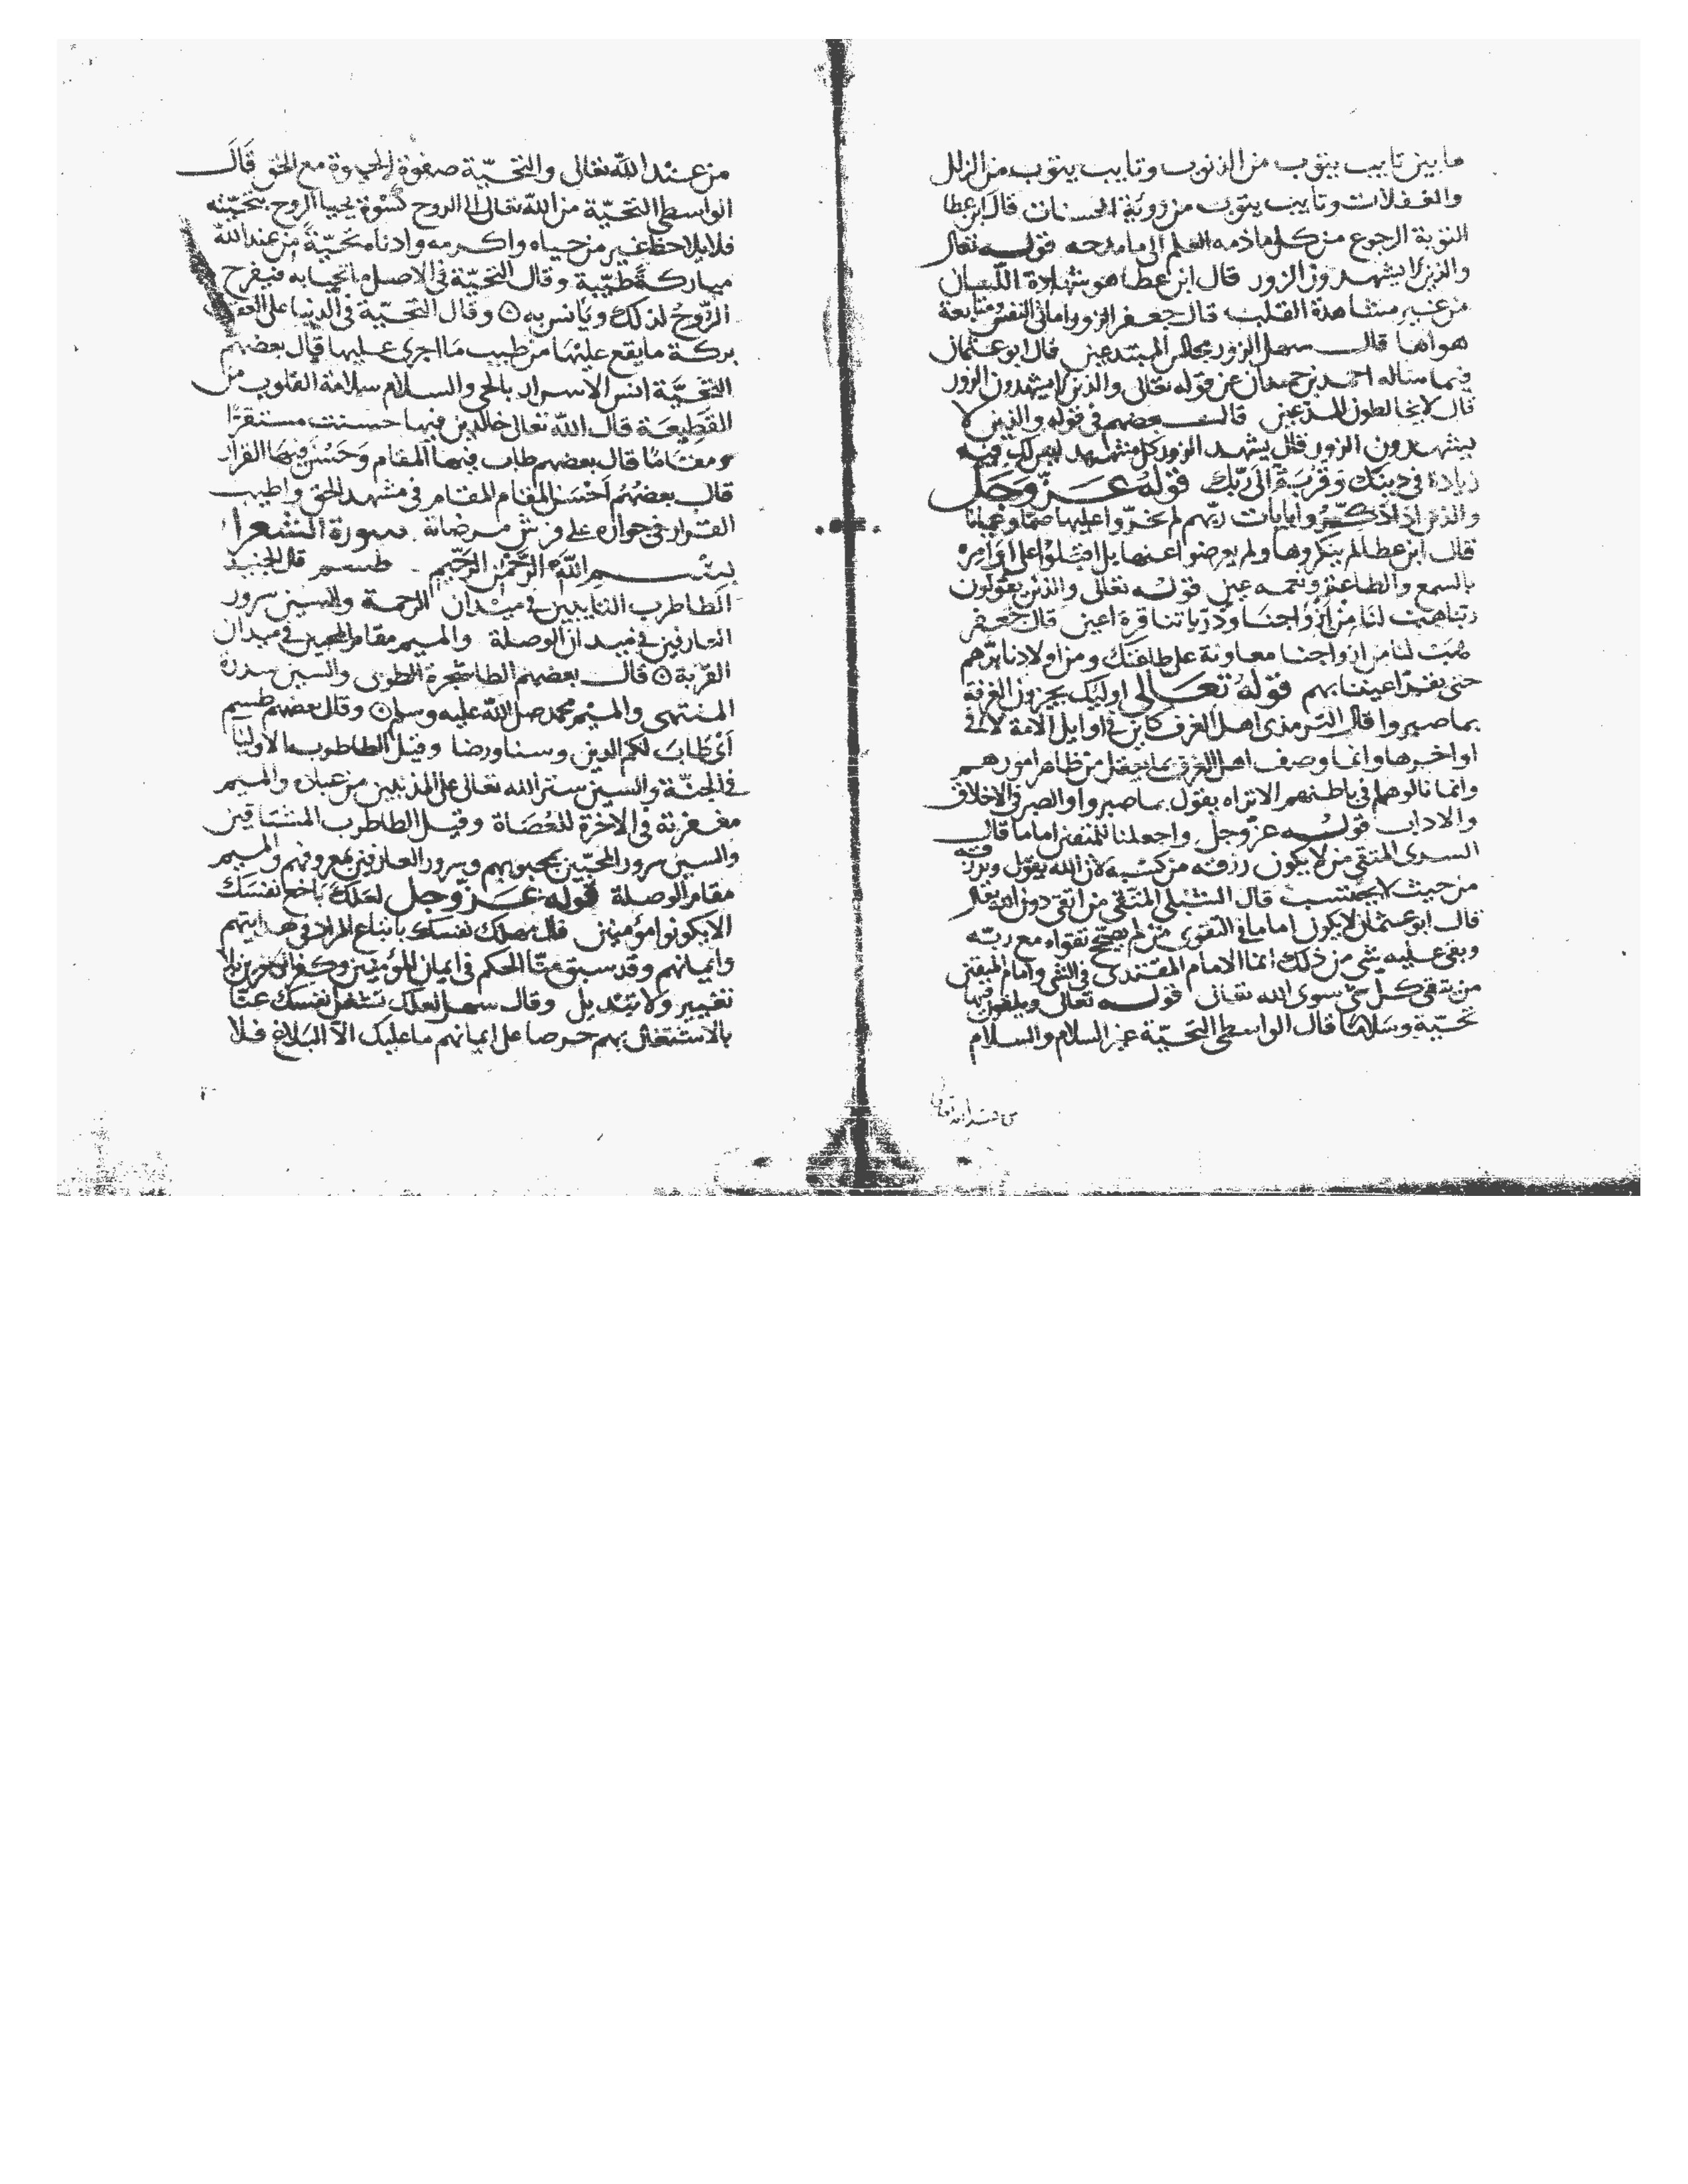 ما بين تايب يتوب من الذنوب وتايب يتوب من الزلل
والغفلات وتايب يتوب من رؤية الحسنات قال ابن عطا
التوبة الرجوع من كل ما ذمه العلم الى ما مدحه قوله تعالى
والذين لا يشهدون الزور قال ابن عطا هو شهادة اللسان
من غير مشاهدة القلب قال جعفر الزور امانى النفس ومتابعة
هواها قال سهل الزور مجالس المبتدعين قال ابو عثمان
فيما ساله احمد بن حمدان عن قوله تعالى والذين لا يشهدون الزور
قال لا يخالطون المدعين قال بعضهم فى قوله والذين لا
يشهدون الزور قال يشهد الزور كل مشهد ليس لك فيه
زيادة فى دينك وقربة الى ربك قوله عز وجل
والذين اذا ذكروا بايات ربهم لم يخروا عليها صما وعميانا
قال ابن عطا لم ينكروها ولم يعرضوا عنها بل اقبلوا على اوامره
بالسمع والطاعة قوله تعالى والذين يقولون
ربنا هب لنا من ازواجنا وذرياتنا قرة اعين قال جعفر
هب لنا من ازواجنا معاونة على طاعتك ومن اولادنا برهم
حتى تقر اعيننا بهم قوله تعالى اوليك يجزون الغرفة
بما صبروا قال الترمذى اهل الغرف كاين فى اوايل الامة لا فى
اواخرها وانما وصف اهل الغرف بما يعقل من ظاهر امورهم
وانما نالوها بما فى باطنهم الا تراه يقول بما صبروا والصبر فى الاخلاق
والاداب قوله عز وجل واجعلنا للمتقين اماما قال
السدى المتقى من لا يكون رزقه من كسبه لان الله يقول ويرزقه
من حيث لا يحتسب قال الشبلى المتقى من اتقى دون الله تعالى
قال ابو عثمان لا يكون اماما فى التقوى من لم يصحح تقواه مع ربه
وبقى عليه شي من ذلك انما الامام المقتدى فى التقى وامام المتقين
من يتقى كل شي سوى الله تعالى قوله تعالى ويلقون فيها
تحية وسلاما قال الواسطى التحية عز السلام والسلام
من عند الله تعالى
من عند الله تعالى والتحية صفوة الحيوة مع الحق قال
الواسطى التحية من الله تعالى الى الروح كسوة يحيا الروح بتحيته
فلا يلاحظ غير من حياه واكرمه وادناه تحية من عند الله
مباركة طيبة وقال التحية فى الاصل ما تحيا به فيفرح
الروح لذلك ويانس به وقال التحية فى الدنيا على
بركة ما يقع عليها من طيب ما اجرى عليها قال بعضهم
التحية انس الاسرار بالحى والسلام سلامة القلوب من
القطيعة قال الله تعالى خالدين فيها حسنت مستقرا
ومقاما قال بعضهم طاب فيها المقام وحسن فيها القرار
قال بعضهم احسن المقام المقام فى مشهد الحق واطيب
القرار فى جواره على فرش مرضاته سورة الشعرا
بسم الله الرحمن الرحيم طسم قال الجنيد
الطا طرب التايبين فى ميدان الرحمة والسين سرور
العارفين فى ميدان الوصلة والميم مقام المحبين فى ميدان
القربة قال بعضهم الطا شجرة الطوبى والسين سدرة
المنتهى والميم محمد صلى الله عليه وسلم وقال بعضهم طسم
اى طاب لكم الدين وسنا ورضا وقيل الطا طوبا الاوليا
فى الجنة والسين ستر الله تعالى على المذنبين من عباده والميم
مغفرته فى الاخرة للعصاة وقيل الطا طرب المشتاقين
والسين سرور المحبين بمحبوبهم وسرور العارفين بمعروفهم والميم
مقام الوصلة قوله عز وجل لعلك باخع نفسك
الا يكونوا مؤمنين قال مهلك نفسك باتباع المراد فى هدايتهم
وايمانهم وقد سبق منا الحكم فى ايمان المؤمنين وكفر الكافرين فلا
تغيير ولا تبديل وقال سهل لعلك تشغل نفسك عنا
بالاشتغال بهم حرصا على ايمانهم ما عليك الا البلاغ فلا